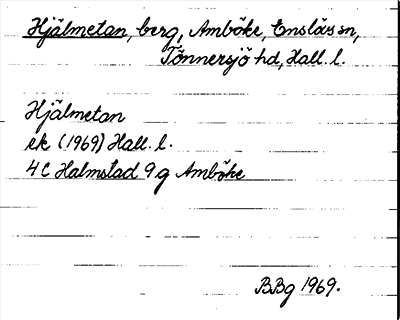 Hjälmetan, berg, Amböke, Enslövs sn,
Tönnersjö hd, Hall. l.
Hjälmetan
ek (1969) Hall. l.
4 C Halmstad 9 g Amböke
BBg 1969.